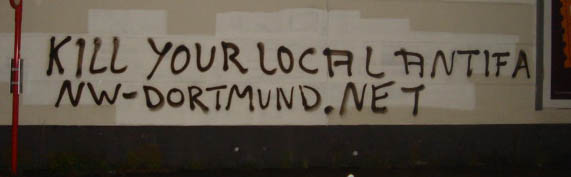 KILL YOUR LOCAL ANTIFA
NW-DORTMUND.NET